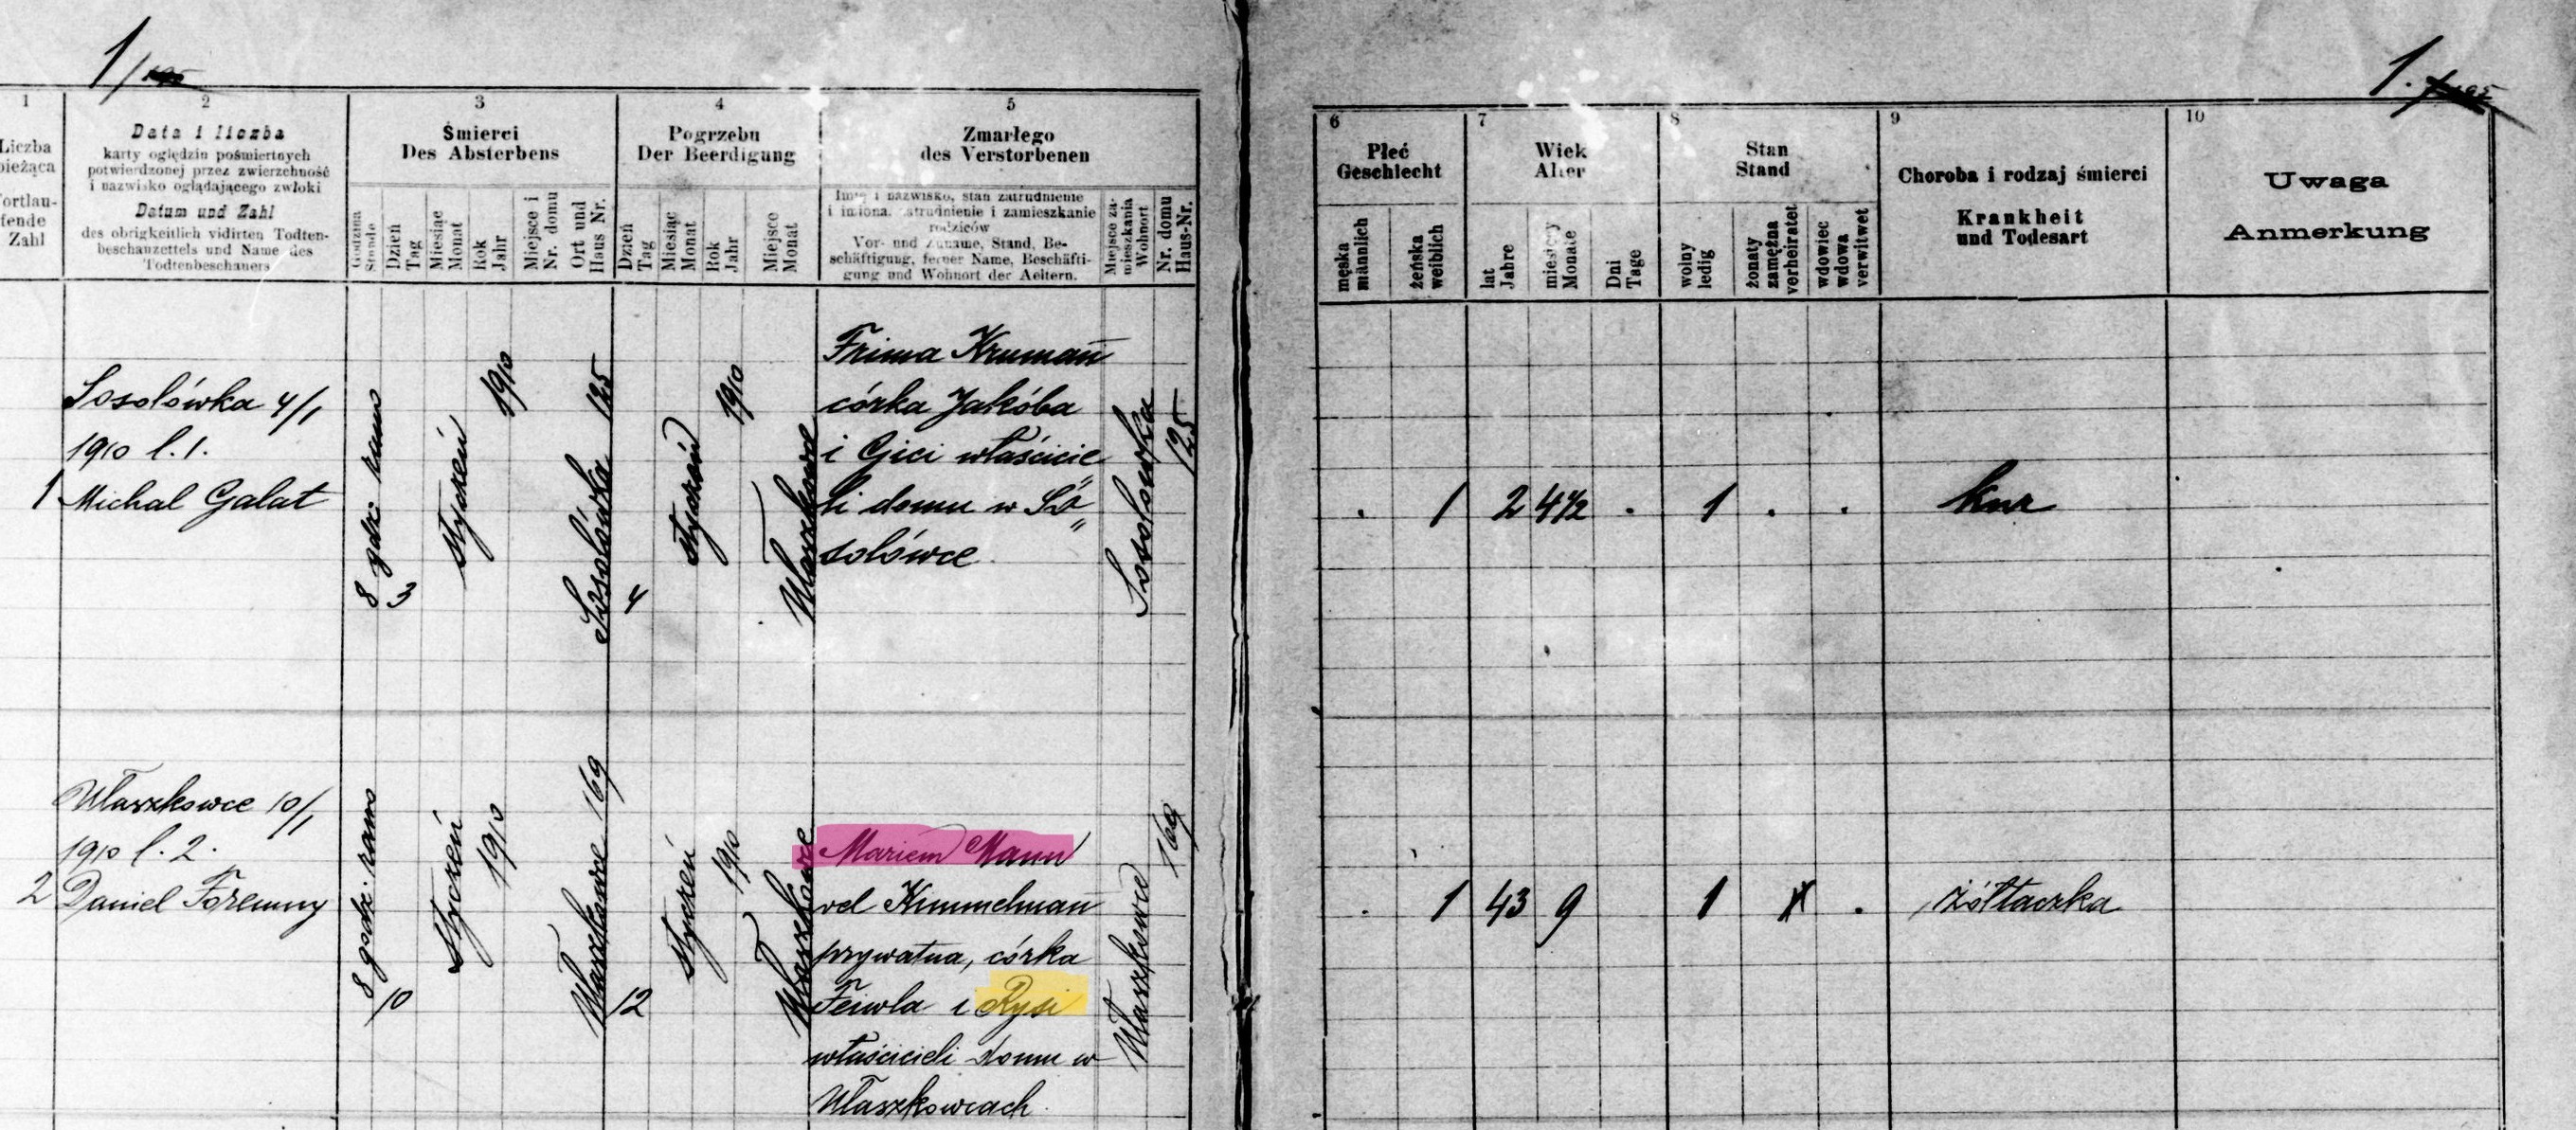 1/
1.
1
2
3
4
5
6
7
8
9
10
Liczba
bieżąca
Fortlau-
fende
Zahl
Data i liczba
karty oględzin pośmiertnych
potwierdzonej przez zwierzchność
i nazwisko oglądającego zwłoki
Datum und Zahl
des obrigkeitlich vidirten Todten-
beschauzettels und Name des
Todtenbeschauers
Śmierci
Des Absterbens
Godzina
Stunde
Dzień
Tag
Miesiąc
Monat
Rok
Jahr
Miejsce i
Nr. domu
Ort und
Haus Nr.
Pogrzebu
Der Beerdigung
Dzień
Tag
Miesiąc
Monat
Rok
Jahr
Miejsce
Monat
Zmarłego
des Verstorbenen
Imię i nazwisko, stan zatrudnienie
i imiona, zatrudnienie i zamieszkanie
rodziców
Vor- und Zuname, Stand, Be-
schäftigung, ferner Name, Beschäfti-
gung und Wohnort der Aeltern.
Miejsce za-
mieszkania
Wohnort
Nr. domu
Haus-Nr.
Płeć
Geschlecht
męska
männlich
żeńska
weiblich
Wiek
Alter
lat
Jahre
miesięcy
Monate
Dni
Tage
Stan
Stand
wolny
ledig
żonaty
zamężna
verheiratet
wdowiec
wdowa
verwitwet
Choroba i rodzaj śmierci
Krankheit
und Todesart
Uwaga
Anmerkung
1
Sosolówka 4/1
1910 l. 1.
Michal Galat
8 gdz. rano
3
styczeń
1910
Sosolówka 125
4
styczeń
1910
Ułaszkowce
Frima Kruman̄
córka Jakóba
i Gici właścicie
li domu w So
solówce
Sosolówka
125
. 1 2 4½ . 1 . .
kur
2
Ułaszkowce 10/1
1910 l. 2.
Daniel Foremny
8 godz. rano
10
styczeń
1910
Ułaszkowce 169
12
styczeń
1910
Ułaszkowce
Mariem Mann
vel Kimmelman̄
prywatna, córka
Feiwla i Rysi
właścicieli domu w
Ułaszkowcach.
Ułaszkowce
169
. 1 43 9 1 .
żółtaczka